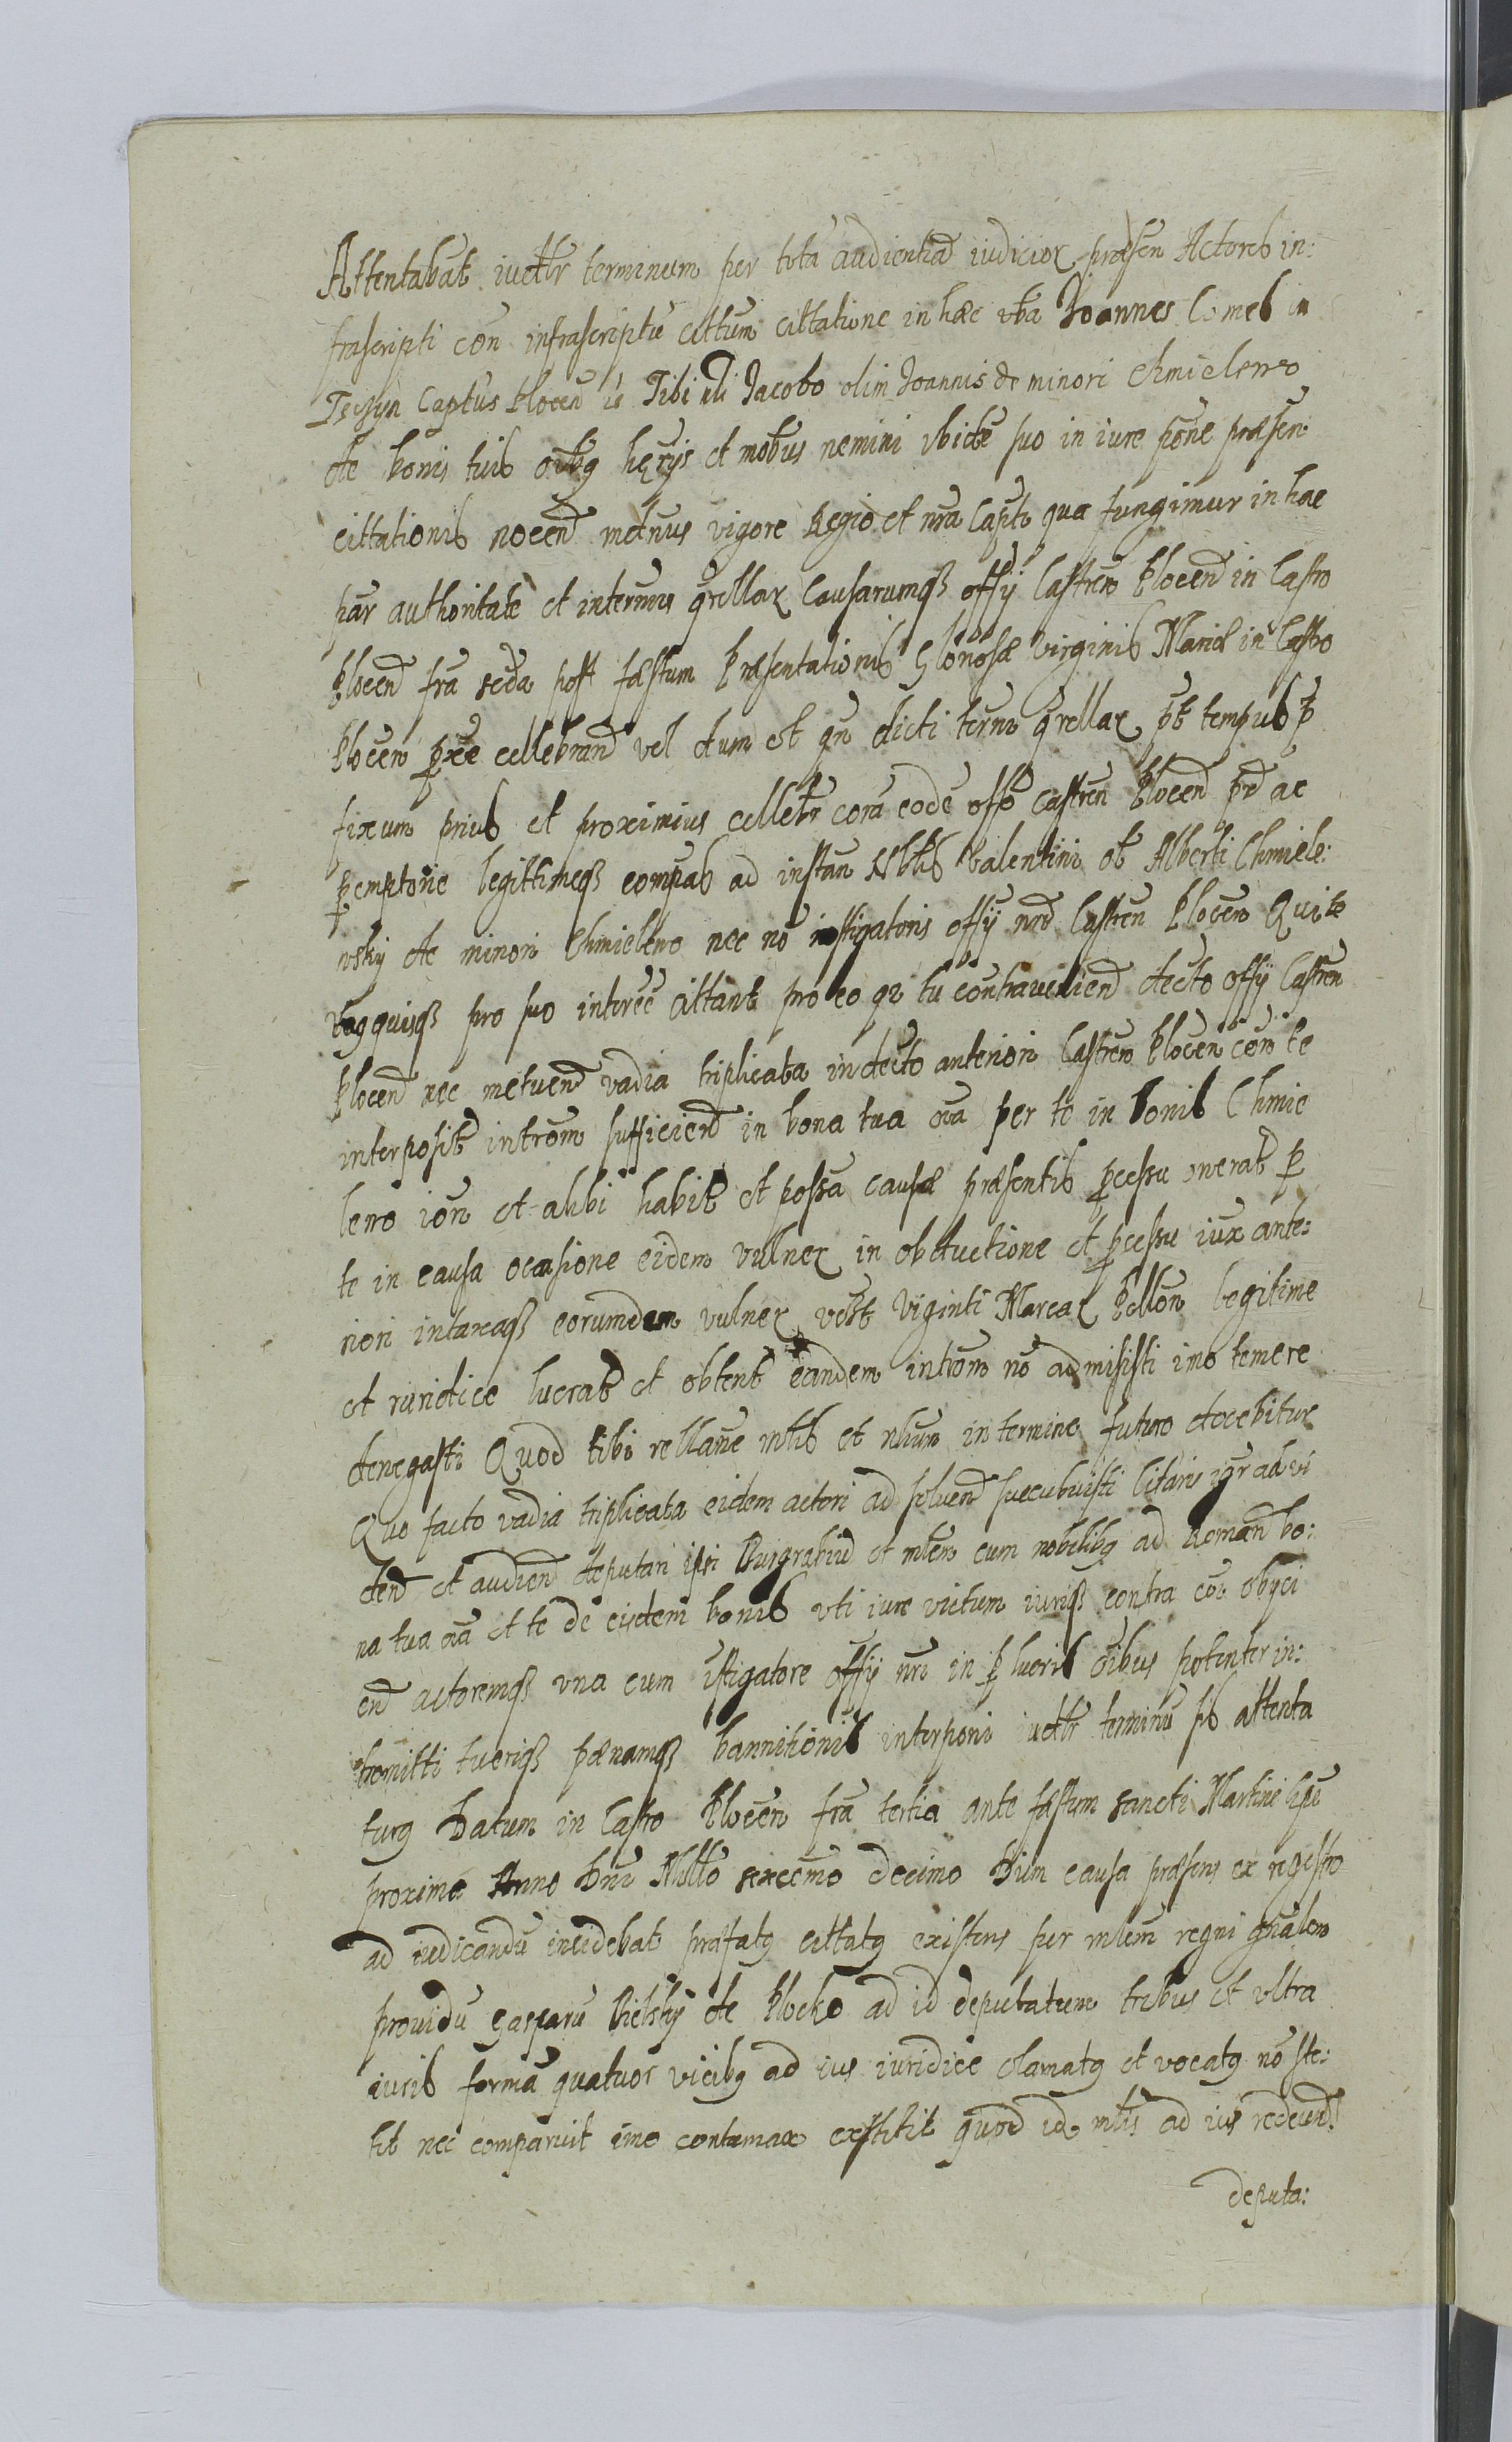 Attentabat iudtr terminum per totā audientiā iudicior præsen Actores in:
frascripti con infrascriptū cittum cittatione in hæc vba Joannes Comes in
Tęczyn Captus Plocen ꝛc Tibi nli Jacobo olim Joannis de minori Chmielewo
de bonis tuis oibꝯ hęrijs et mobus nemini vbicḡ suo in iure pone præsen
cittationis nocen mdnus vigore Regio et nra Capti qua fungimur in hac
par authoritate et internus qrellar Causarumqꝫ offij Castren Plocen in Castro
Plocen fra scda post fæstum Præsentationis Gloriosæ Virginis Mariæ in Castro
Plocen ꝓxe cellebrand vel dum et qn dicti termi qrellar pt tempus p
fixum prius et proximius cellebr corā eodē offo castren Plocen pr ac
ꝑemptorie legittimeqꝫ compas ad instan Nblis Valentini ol Alberti Chmiele:
wsky de minori Chmielewo nec nō instigatoris offij nri Castren Plocen Qui te
vtqꝫ quisqꝫ pro suo interee cittant pro eo qꝛ tu contraveniend decto offij Castren
Plocen nec metuend vadia triplicata in decto anteriori Castren Plocen con te
interposit introm sufficiend in bona tua oīa per te in bonis Chmie
lewo ion et alibi habit et possa causæ præsentis ꝓcessu onerat ꝑ
te in causa ocasione eidem vulner in obductione et ꝓcessu iux ante:
riori intaxaqꝫ eorumdem vulner vdlt viginti Marcar Pollon legitime
et iuridice lucrat et obtent eandem introm nō admisisti imo temere
denegasti Quod tibi rellane mlis et nlium in termine futuro docebitur
Quo facto vadia triplicata eidem actori ad solvend succubuisti Citaris igr ad vi
dend et audiend deputari ipsi Burgrabiū et mlem cum nobilibꝯ ad Roman bo:
na tua oīa et te de eisdem bonis vti iure victum iuriqꝫ contra con obijci
end actoremqꝫ vna cum istigatore offij nri in ꝑ lucris oibus potenter in:
tromitti tueriqꝫ pænamqꝫ bannitionis interponi iudtr terminū ps attenta
turꝯ Datum in Castro Plocen fra tertia ante fæstum sancti Martini Epi
proxima Anno Dni Millo sexcemo decimo Dum causa præsens ex regestro
ad iudicandū incidebat præfatꝯ cittatꝯ existens per mlem regni gnalem
prouidū Gasparū Bielsky de Plocko ad id deputatum tribus et vltra
iuris formā quatuor vicibꝯ ad ius iuridice clamatꝯ et vocatꝯ nō ste:
tit nec comparuit imo contumax exstitit quod id mlis ad ius redeund
deputa: